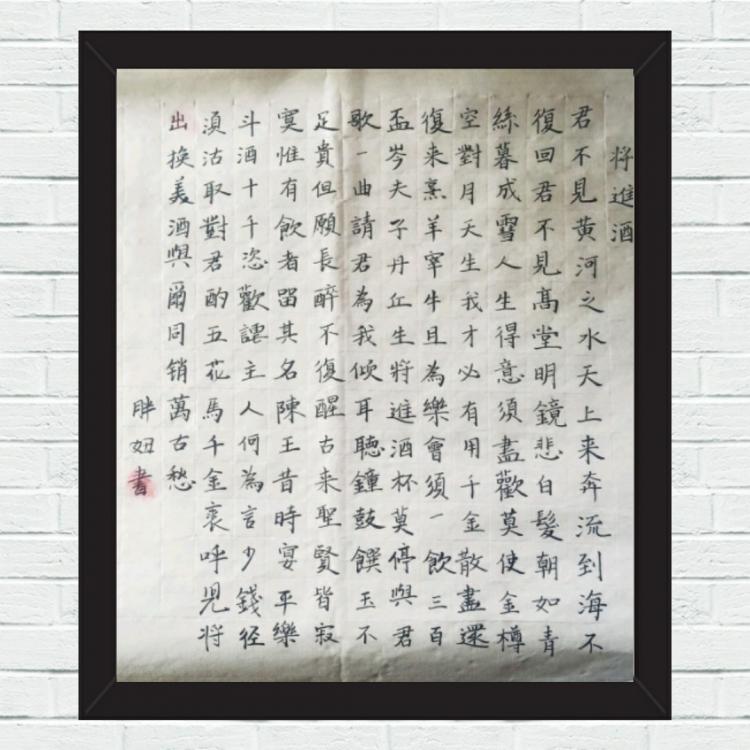 将進酒
君不見黄河之水天上来奔流到海不
復回君不見髙堂明鏡悲白髪朝如青
絲暮成雪人生得意須盡歡莫使金樽
空對月天生我才必有用千金散盡還
復来烹羊宰牛且為樂會須一飲三百
盃岑夫子丹丘生將進酒杯莫停與君
歌一曲請君為我倾耳聽鐘鼓饌玉不
足貴但願長醉不復醒古来聖賢皆寂
寞惟有飲者留其名陳王昔時宴平樂
斗酒十千恣歡謔主人何為言少錢径
湏沽取對君酌五花馬千金裘呼児将
出換美酒與爾同销萬古愁
胖妞書